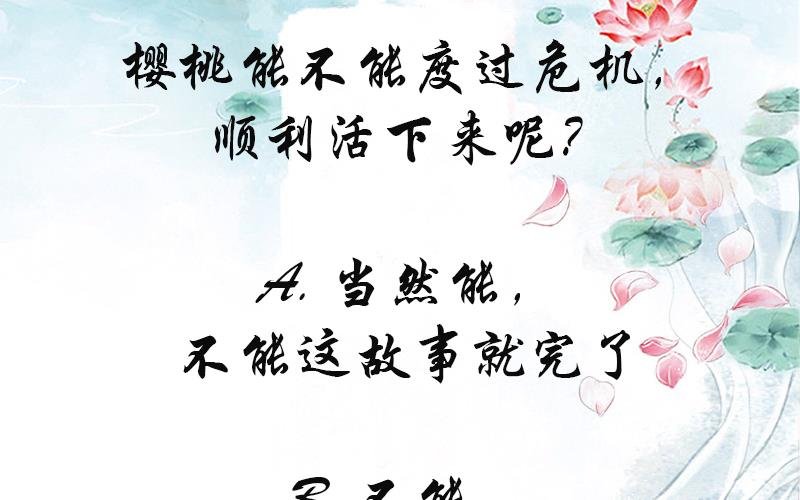 樱桃能不能度过危机，
顺利活下来呢？
A. 当然能，
不能这故事就完了
B. 不能